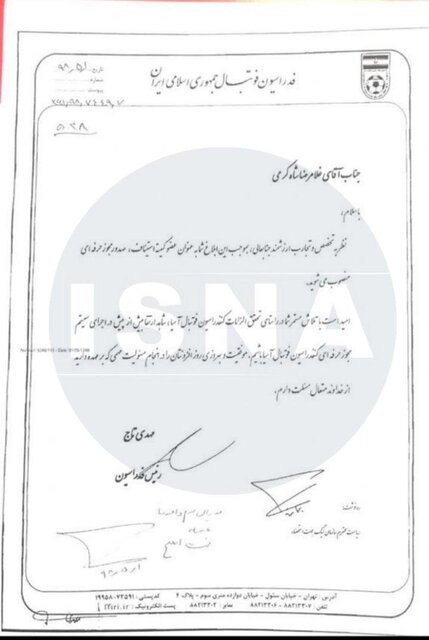 فدراسیون فوتبال جمهوری اسلامی ایران
تاریخ
پیوست
جناب آقای غلامرضا شاه کرمی
با سلام،
نظر به تخصص و تجارب ارزشمند جنابعالی، بموجب این ابلاغ شما به عنوان عضو کمیته استیناف، صدور مجوز حرفه ای
منصوب می شوید.
امید است با تلاش مستمر شما در راستای تحقق الزامات کنفدراسیون فوتبال آسیا، شاهد ارتقا بیش از پیش در اجرای سیستم
مجوز حرفه ای کنفدراسیون فوتبال آسیا باشیم. موفقیت و بهروزی روز افزونتان را در انجام مسئولیت مهمی که بر عهده دارید
از خداوند متعال مسئلت دارم.
ISNA
مهدی تاج
رئیس فدراسیون
رونوشت:
ریاست محترم سازمان لیگ جهت استحضار
آدرس: تهران - خیابان سئول - خیابان دوازده متری سوم - پلاک ۴ کدپستی: ۱۹۹۵۸-۷۳۵۹۱
تلفن: ۸۸۲۱۳۳۰۷ - ۸۸۲۱۳۳۰۶ نمابر: ۸۸۲۱۳۳۰۲ پست الکترونیک: ffiri.ir